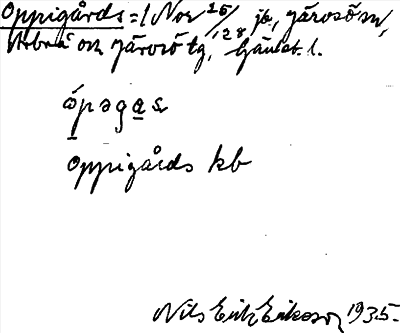 Oppigårds = / Nor 25/128 jb, Järvsö sn,
Arbrå och Järvsö tg, Gävleb. l.
ópəgas
Oppigårds kb
Nils Erik Eriksson 1935.